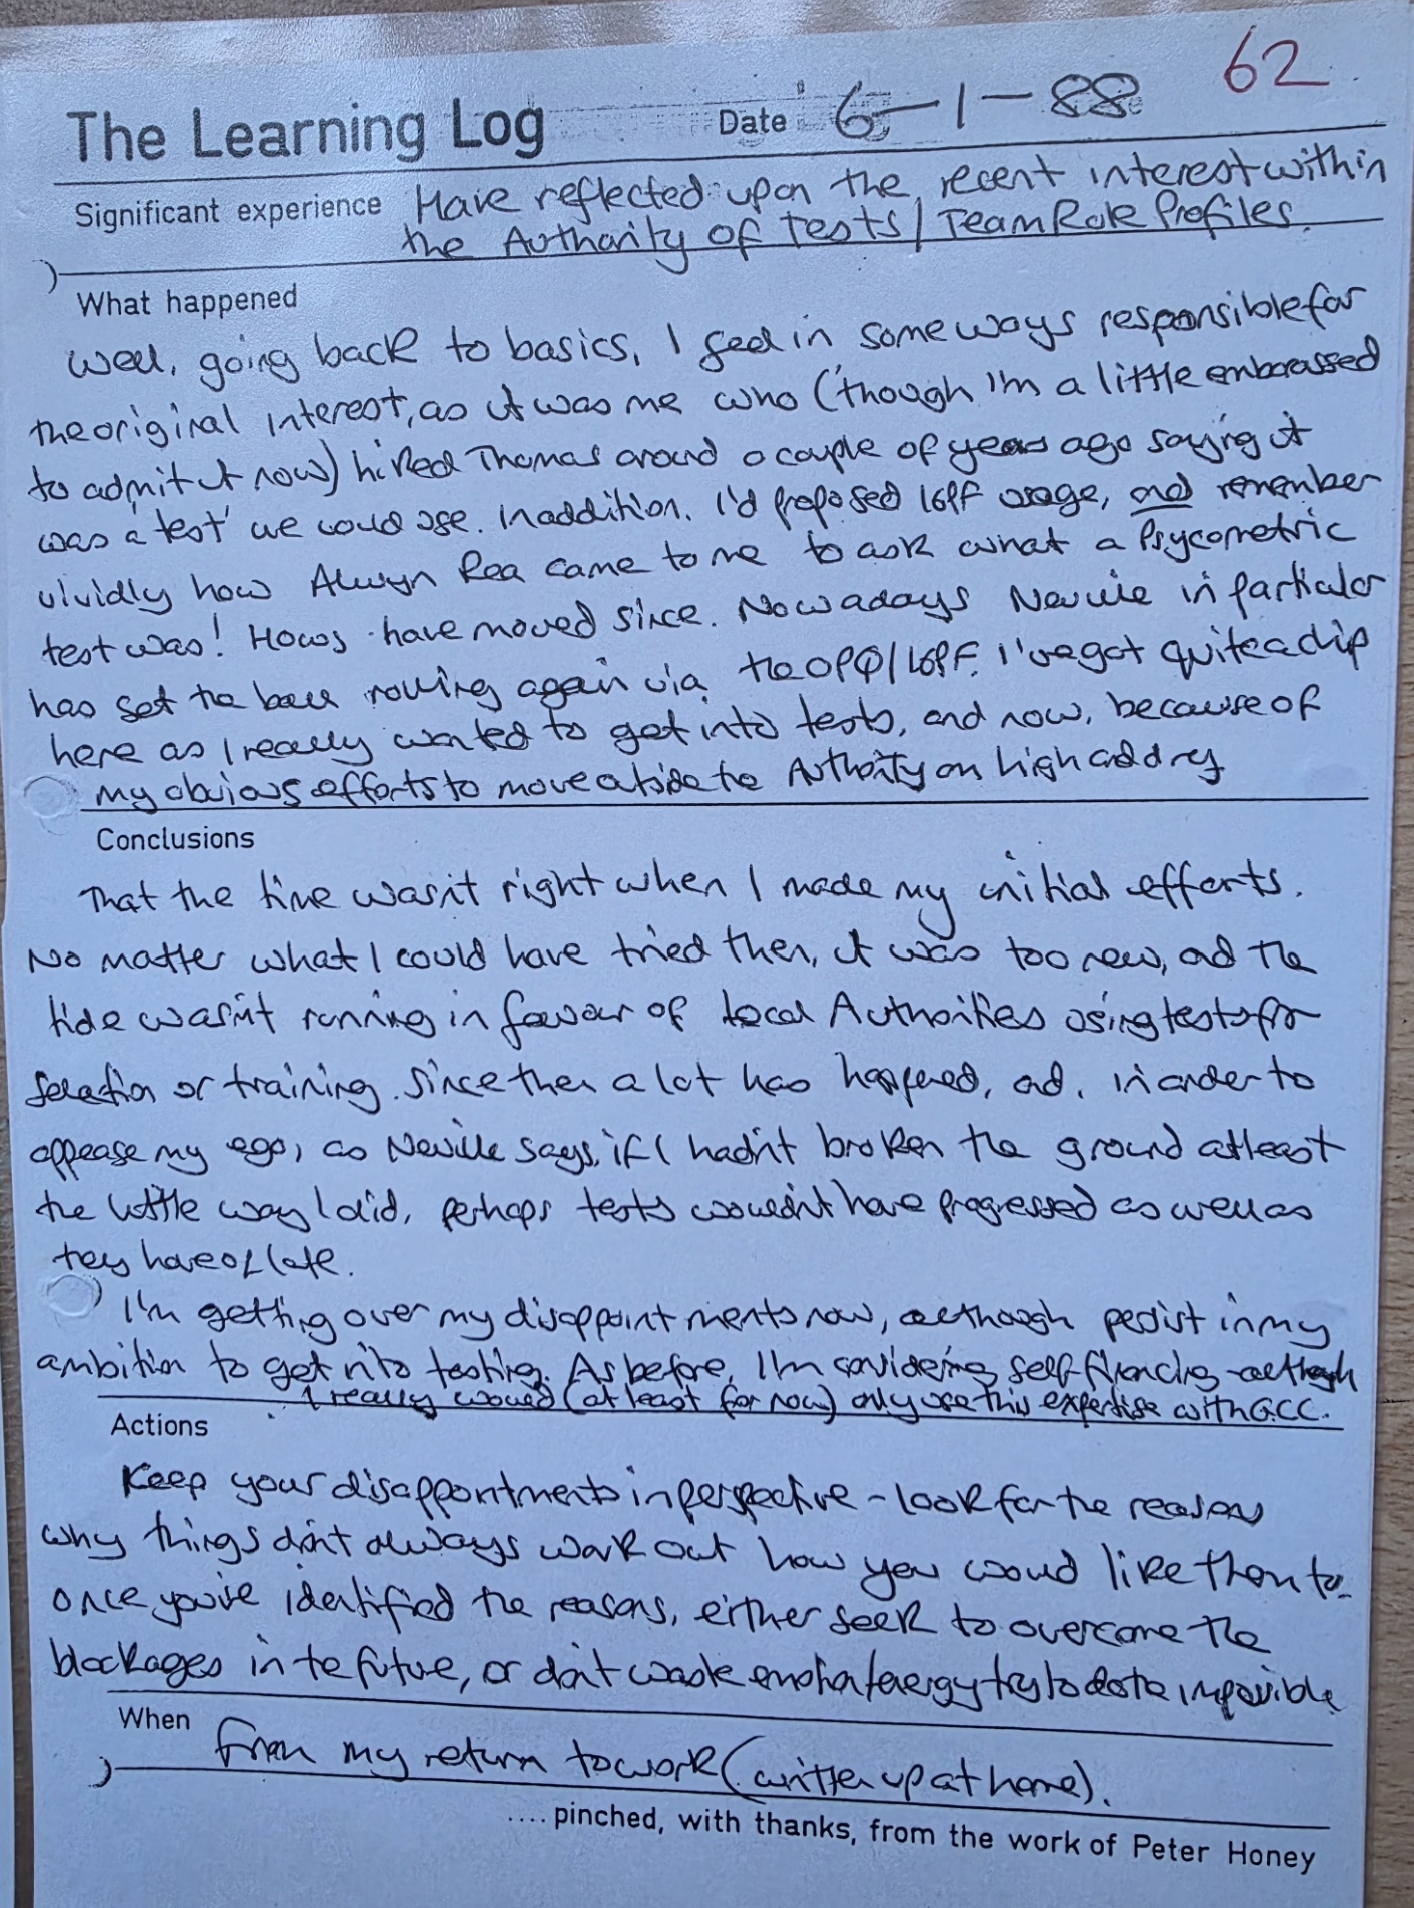 62
The Learning Log Date 6-1-88
Significant experience Have reflected upon the recent interest within
the Authority of Tests/Team Role Profiles.
What happened
Well, going back to basics, I feel in some ways responsible for
the original interest, as it was me who (though I'm a little embarassed
to admit it now) hired Thomas around a couple of years ago saying it
was a 'test' we could use. In addition, I'd proposed 16PF usage, and remember
vividly how Alwyn Rea came to me to ask what a Psycometric
test was! Hows have moved since. Nowadays Neville in particular
has set the ball rolling again via the OPQ/16PF. I've got quite a chip
here as I really wanted to get into tests, and now, because of
my obvious efforts to move outside the Authority on high and dry
Conclusions
That the time wasn't right when I made my initial efforts.
No matter what I could have tried then, it was too new, and the
tide wasn't running in favour of Local Authorities using tests for
selection or training. Since then a lot has happened, and, in order to
appease my ego, as Neville says, if I hadn't broken the ground at least
the little way I did, perhaps tests wouldn't have progressed as well as
they have of late.
I'm getting over my disappointments now, although persist in my
ambition to get into testing. As before, I'm considering self-financing - although
I really would (at least for now) only use this expertise with GCC.
Actions
Keep your disappointments in perspective - look for the reasons
why things don't always work out how you would like them to.
Once you've identified the reasons, either seek to overcome the
blockages in the future, or don't waste emotion/energy try to do the impossible
When From my return to work (written up at home).
.... pinched, with thanks, from the work of Peter Honey